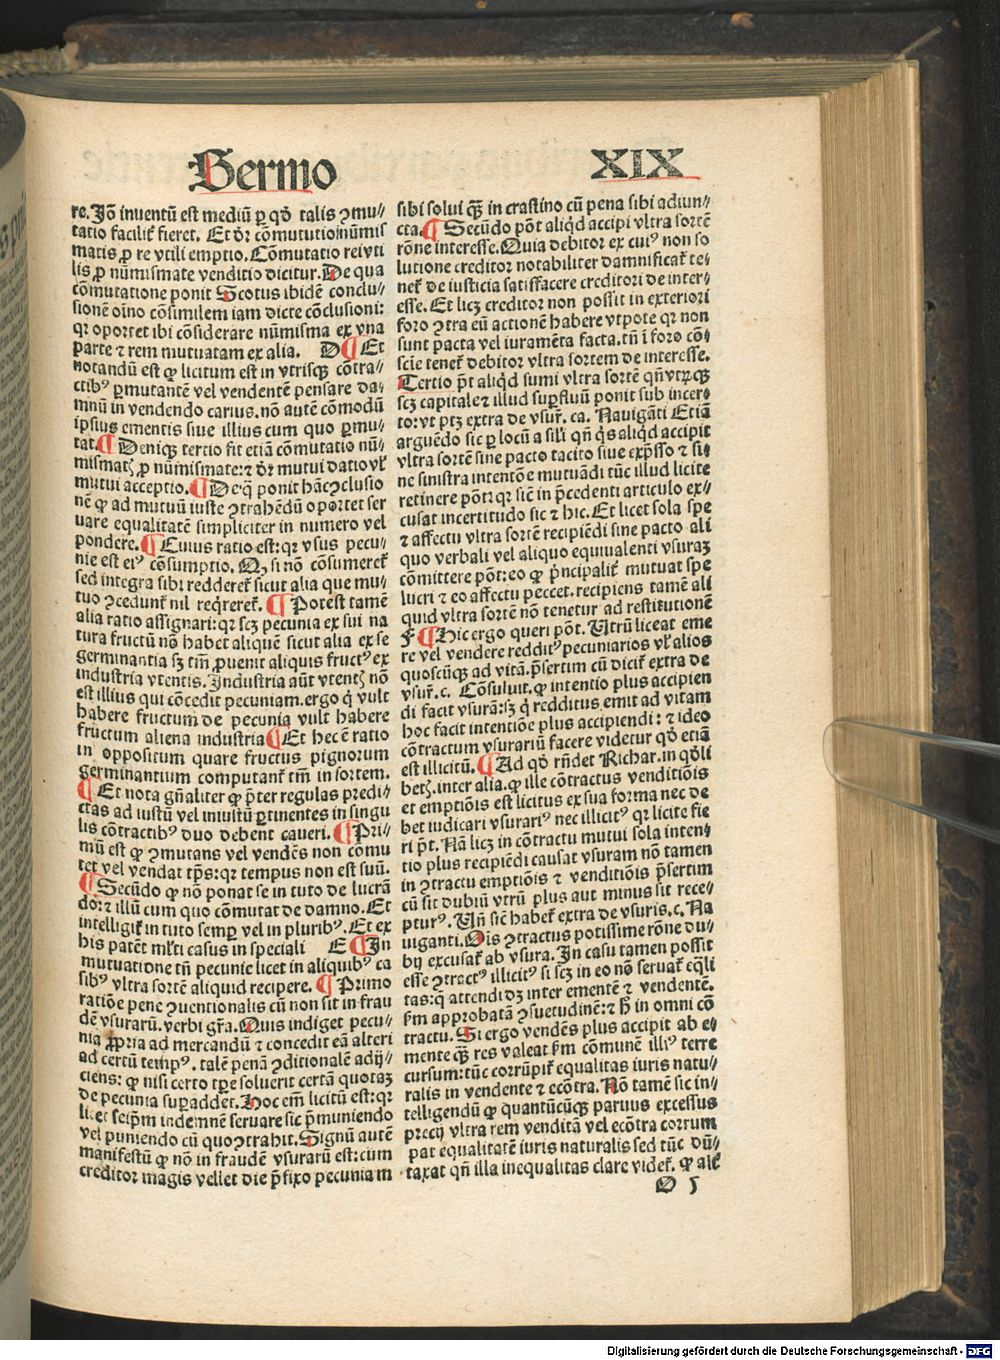 Sermo
XIX
re. Jō inuentū est mediū ꝑ qd̄ talis ꝯmu//
tatio faciliꝰ fieret. Et dr̄ cōmutatio numis
matis ꝓ re vtili emptio. Cōmutatio rei vti
lis ꝓ nūmismate venditio dicitur. De qua
cōmutatione ponit Scotus ibidē conclu//
sionē oīno cōsimilem iam dicte cōclusioni:
qꝛ oportet ibi cōsiderare nūmisma ex vna
parte ⁊ rem mutuatam ex alia. D ¶ Et
notandū est ꝙ licitum est in vtrisqꝫ cōtra//
ctibꝰ ꝑmutantē vel vendentē pensare da//
mnū in vendendo carius. nō autē cōmodū
ipsius ementis siue illius cum quo ꝑmu//
tat. ¶ Deniqꝫ tertio fit etiā cōmutatio nū//
mismatꝭ ꝓ nūmismate: ⁊ dr̄ mutui datio vl̓
mutui acceptio. ¶ De q̄ ponit hāc ꝯclusio
nē ꝙ ad mutuū iuste ꝯtrahēdū oportet ser
uare equalitatē simpliciter in numero vel
pondere. ¶ Cuius ratio est: qꝛ vsus pecu//
nie est eiꝰ cōsumptio. Qꝫ si nō cōsumeret̄
sed integra sibi redderet̄ sicut alia que mu//
tuo ꝯcedunt̄ nil req̄reret̄. ¶ Potest tamē
alia ratio assignari: qꝛ scꝫ pecunia ex sui na
tura fructū nō habet aliquē sicut alia ex se
germinantia sꝫ tm̄ ꝓuenit aliquis fructꝰ ex
industria vtentis. Industria aūt vtentꝭ nō
est illius qui cōcedit pecuniam. ergo q̇ vult
habere fructum de pecunia vult habere
fructum aliena industria ¶ Et hec ē ratio
in oppositum quare fructus pignorum
germinantium computant̄ tm̄ in sortem.
¶ Et nota gn̄aliter ꝙ p̄ter regulas predi//
ctas ad iustū vel iniustū ꝑtinentes in singu
lis cōtractibꝰ duo debent caueri. ¶ Pri//
mū est ꝙ ꝯmutans vel vendēs non cōmu
tet vel vendat tp̄s: qꝛ tempus non est suū.
¶ Secūdo ꝙ nō ponat se in tuto de lucrā
do: ⁊ illū cum quo cōmutat de damno. Et
intelligit̄ in tuto semꝑ vel in pluribꝰ. Et ex
his patēt ml̓ti casus in speciali E ¶ In
mutuatione tn̄ pecunie licet in aliquibꝰ ca
sibꝰ vltra sortē aliquid recipere. ¶ Primo
ratiōe pene ꝯuentionalis cū non sit in frau
dē vsurarū. verbi gr̄a. Quis indiget pecu//
nia ꝓpria ad mercandū ⁊ concedit eā alteri
ad certū tempꝰ. talē penā ꝯditionalē adij//
ciens: ꝙ nisi certo tp̄e soluerit certā quotaꝫ
de pecunia suꝑaddet. Hoc em̄ licitū est: qꝛ
licet seip̄m indemnē seruare sic p̄muniendo
vel puniendo cū quo ꝯtrahit. Signū autē
manifestū ꝙ nō in fraudē vsurarū est: cum
creditor magis vellet die p̄fixo pecuniam
sibi solui qꝫ̄ in crastino cū pena sibi adiun//
cta. ¶ Secūdo pōt aliqd̄ accipi vltra sortē
rōne interesse. Quia debitor ex cuiꝰ non so
lutione creditor notabiliter damnificat̄ te//
net̄ de iusticia satisfacere creditori de inter//
esse. Et licꝫ creditor non possit in exteriori
foro ꝯtra eū actionē habere vtpote qꝛ non
sunt pacta vel iuramēta facta. tn̄ ī foro cō//
sciē tenet̄ debitor vltra sortem de interesse.
Tertio p̄t aliqd̄ sumi vltra sortē qn̄ vtrūqꝫ
scꝫ capitale ⁊ illud suꝑfluū ponit sub incer//
to: vt ptꝫ extra de vsur̄. ca. Nauigāti Etiā
arguēdo sic ꝑ locū a sil̓i qn̄ q̇s aliqd̄ accipit
vltra sortē sine pacto tacito siue exp̄sso ⁊ si//
ne sinistra intentōe mutuādi tūc illud licite
retinere pōt: qꝛ sic̄ in p̄cedenti articulo ex//
cusat incertitudo sic ⁊ hic. Et licet sola spe
⁊ affectu vltra sortē recipiēdi sine pacto ali
quo verbali vel aliquo equiualenti vsuraꝫ
cōmittere pōt: eo ꝙ p̄ncipalit̄ mutuat spe
lucri ⁊ eo affectu peccet. recipiens tamē ali
quid vltra sortē nō tenetur ad restitutionē
F ¶ Hic ergo queri pōt. Utrū liceat eme
re vel vendere redditꝰ pecuniarios vl̓ alios
quoscūqꝫ ad vitā. p̄sertim cū dicit̄ extra de
vsur̄. c. Cōsuluit. ꝙ intentio plus accipien
di facit vsurā: sꝫ q̇ redditus emit ad vitam
hoc facit intentiōe plus accipiendi: ⁊ ideo
cōtractum vsurariū facere videtur qd̄ etiā
est illicitū. ¶ Ad qd̄ rn̄det Richar. in qd̓li
betꝭ. inter alia. ꝙ ille cōtractus venditiōis
et emptiōis est licitus ex sua forma nec de
bet iudicari vsurariꝰ nec illicitꝰ qꝛ licite fie
ri p̄t. Nā licꝫ in cōtractu mutui sola inten//
tio plus recipiēdi causat vsuram nō tamen
in ꝯtractu emptiōis ⁊ venditiōis p̄sertim
cū sit dubiū vtrū plus aut minus sit rece//
pturꝰ. Un̄ sic̄ habet̄ extra de vsuris. c. Na
uiganti. Dis ꝯtractus potissime rōne du//
bij excusat̄ ab vsura. In casu tamen possit
esse ꝯtractꝰ illicitꝰ si scꝫ in eo nō seruat̄ eq̄li
tas: q̄ attendi dꝫ inter ementē ⁊ vendentē.
ẜm approbatā ꝯsuetudinē: ⁊ h̄ in omni cō
tractu. Si ergo vendēs plus accipit ab e//
mente qꝫ̄ res valeat ẜm cōmunē illiꝰ terre
cursum: tūc corrūpit̄ equalitas iuris natu//
ralis in vendente ⁊ ecōtra. Nō tamē sic in//
telligendū ꝙ quantūcūqꝫ paruus excessus
precij vltra rem venditā vel ecōtra corrum
pat equalitatē iuris naturalis sed tūc dū//
taxat qn̄ illa inequalitas clare videt̄. ꝙ alt̄
O 5
Digitalisierung gefördert durch die Deutsche Forschungsgemeinschaft - DFG